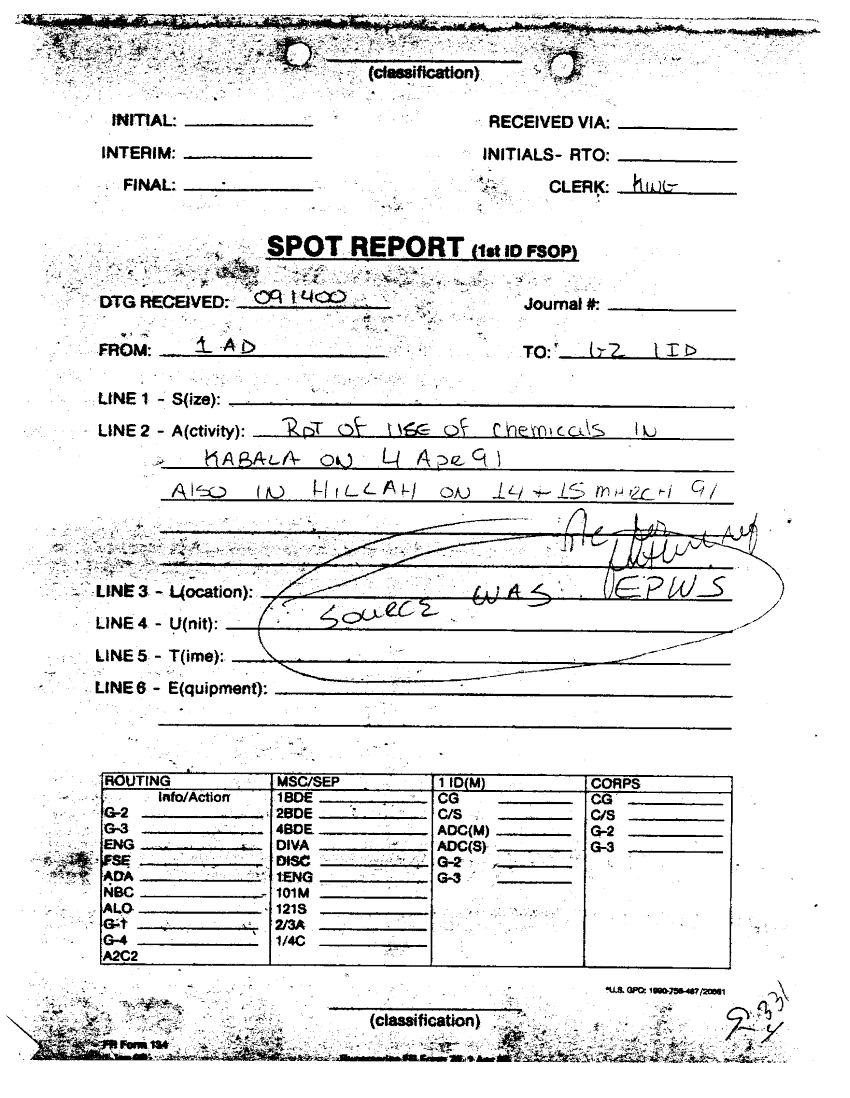 (classification)
INITIAL:
RECEIVED VIA:
INTERIM:
INITIALS- RTO:
FINAL:
CLERK: KING
SPOT REPORT (1st ID FSOP)
DTG RECEIVED: 091400
Journal #:
FROM: 1 AD
TO: G2 1ID
LINE 1 - S(ize):
LINE 2 - A(ctivity): RPT OF USE OF Chemicals IN
KABALA ON 4 Apr 91
Also IN HILLAH ON 14 + 15 MARCH 91
LINE 3 - L(ocation):
SOURCE WAS EPWS
LINE 4 - U(nit):
LINE 5 - T(ime):
LINE 6 - E(quipment):
ROUTING
Info/Action
G-2
G-3
ENG
FSE
ADA
NBC
ALO
G-1
G-4
A2C2
MSC/SEP
1BDE
2BDE
4BDE
DIVA
DISC
1ENG
101M
121S
2/3A
1/4C
1 ID(M)
CG
C/S
ADC(M)
ADC(S)
G-2
G-3
CORPS
CG
C/S
G-2
G-3
*U.S. GPO: 1990-756-487/20661
(classification)
FR Form 134